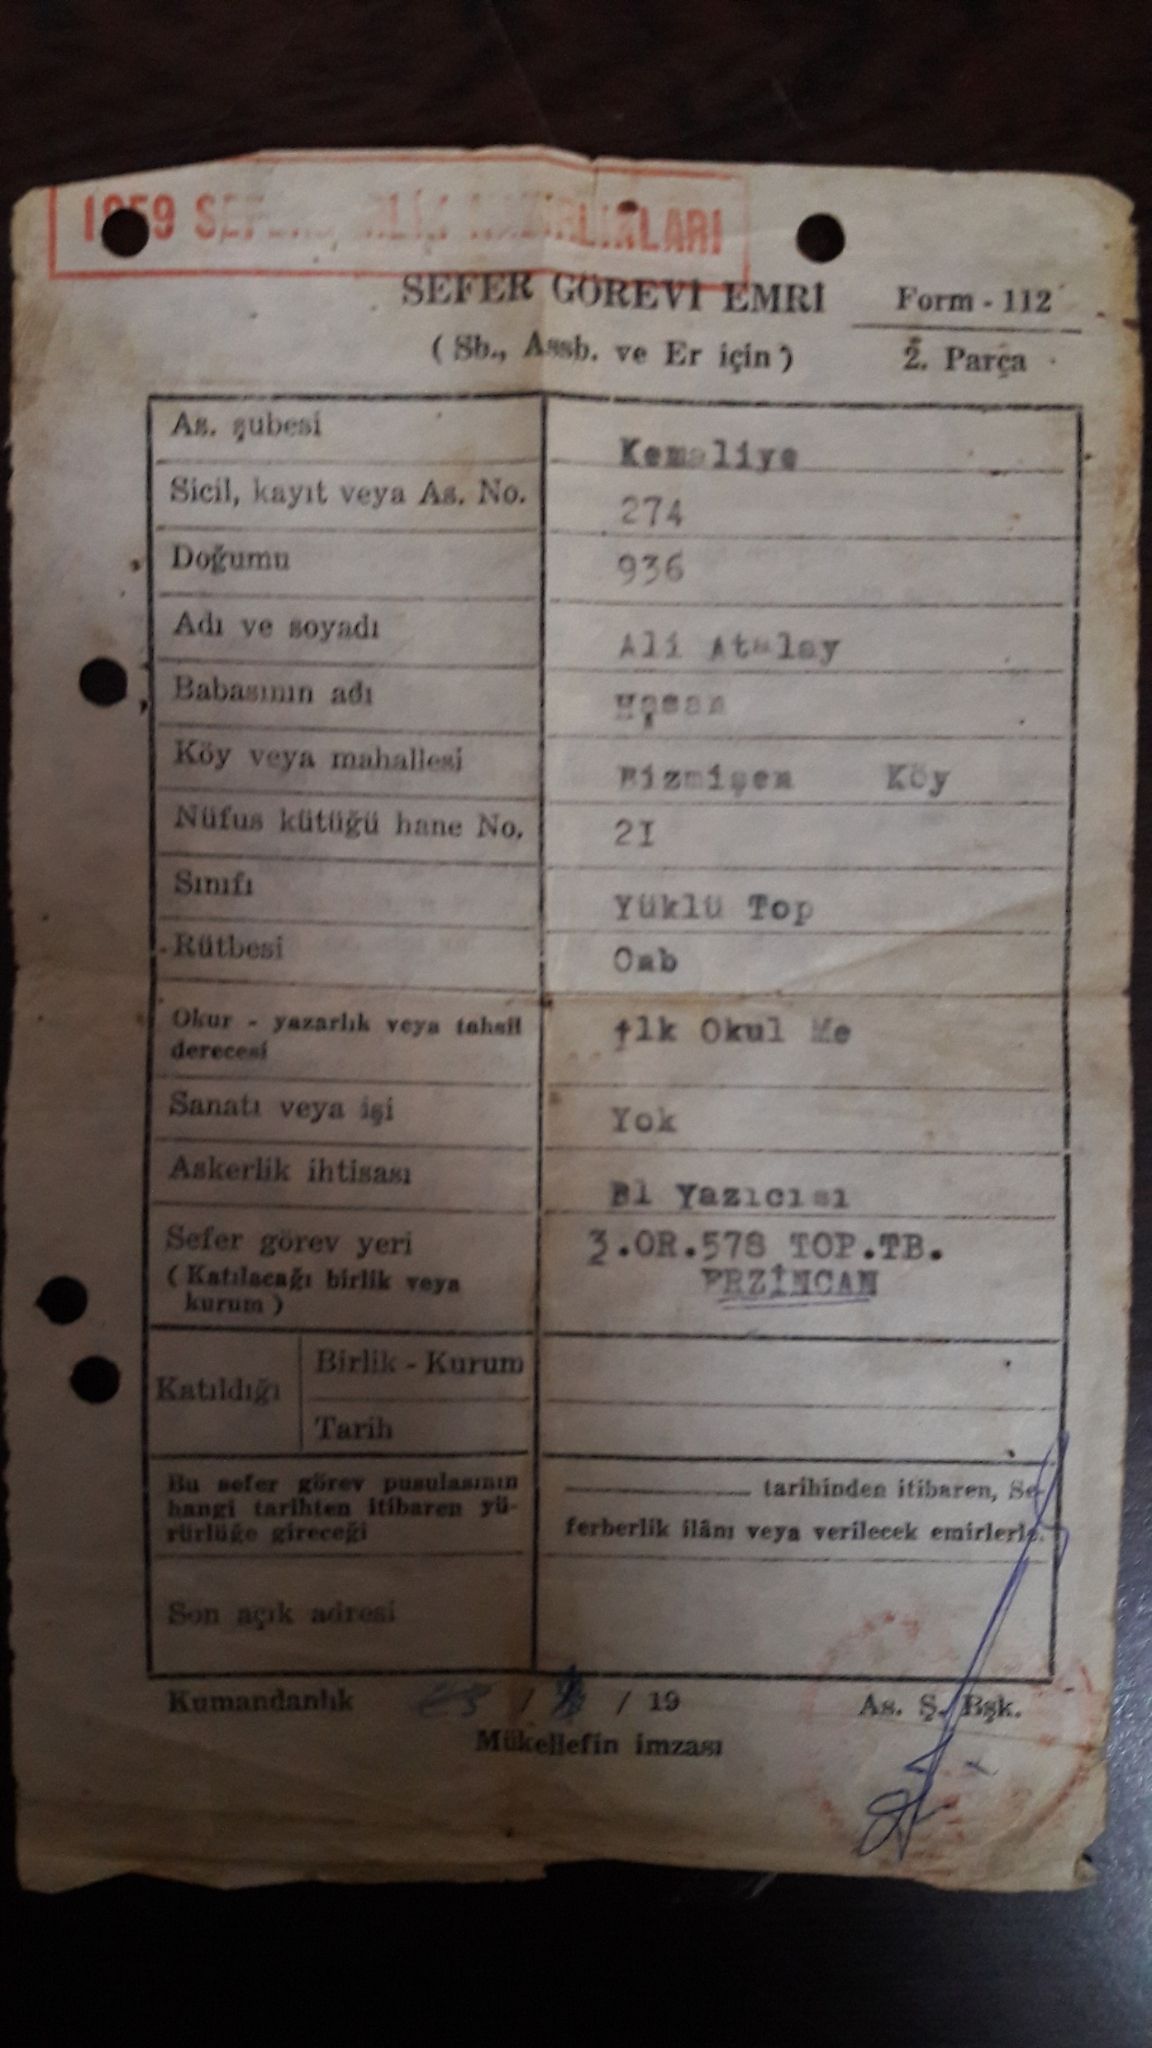 SEFER GÖREVİ EMRİ
Form - 112
( Sb., Assb. ve Er için )
2. Parça
As. şubesi Kemaliye
Sicil, kayıt veya As. No. 274
Doğumu 936
Adı ve soyadı Ali Atalay
Babasının adı Hasan
Köy veya mahallesi Bizmişen Köy
Nüfus kütüğü hane No. 2I
Sınıfı Yüklü Top
Rütbesi Onb
Okur - yazarlık veya tahsil
derecesi
İlk Okul Me
Sanatı veya işi Yok
Askerlik ihtisası Bl Yazıcısı
Sefer görev yeri
( Katılacağı birlik veya
kurum )
3.OR.578 TOP.TB.
ERZİNCAN
Katıldığı
Birlik - Kurum
Tarih
Bu sefer görev pusulasının
hangi tarihten itibaren yü-
rürlüğe gireceği
tarihinden itibaren, Se-
ferberlik ilânı veya verilecek emirlerle.
Son açık adresi
Kumandanlık / / 19 As. Ş. Bşk.
Mükellefin imzası